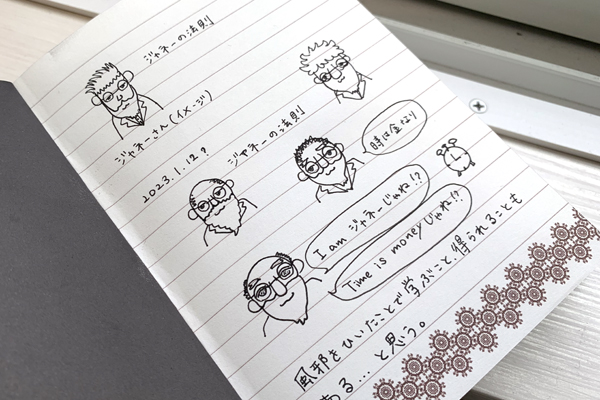 ジャネーの法則
ジャネーさん(イメージ)
2023.1.12?
ジャネーの法則
時は金なり
I am ジャネーじゃね!?
Time is moneyじゃね!?
風邪をひいたことで学ぶこと、得られることも
ある…と思う。